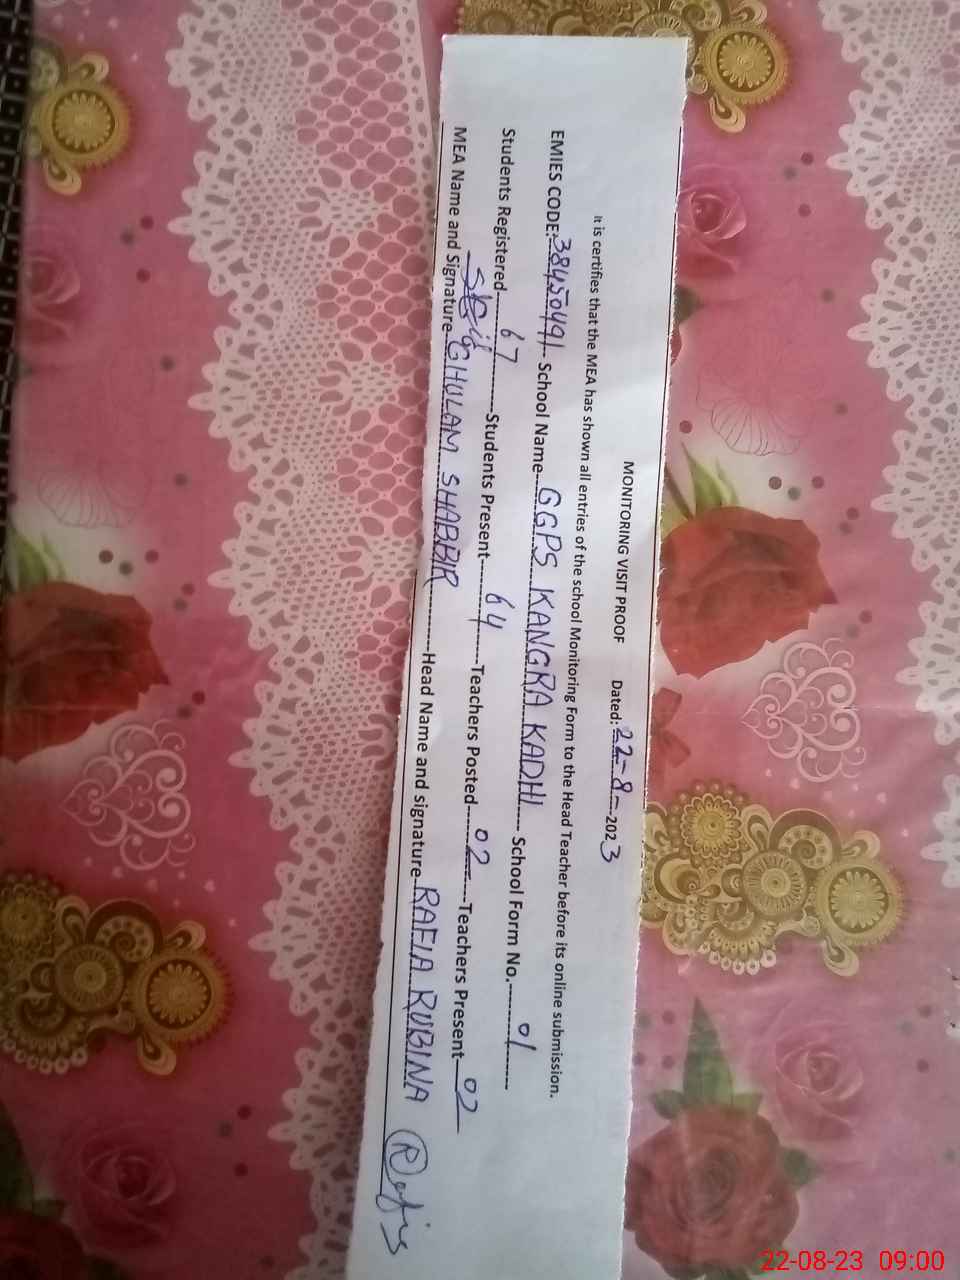 MONITORING VISIT PROOF Dated: 22-8-2023
It is certifies that the MEA has shown all entries of the school Monitoring Form to the Head Teacher before its online submission.
EMIES CODE: 38450491 School Name GGPS KANGRA KADHI School Form No. 01
Students Registered 67 Students Present 64 Teachers Posted 02 Teachers Present 02
MEA Name and Signature GHULAM SHABBIR Head Name and signature RAFIA RUBINA
22-08-23 09:00